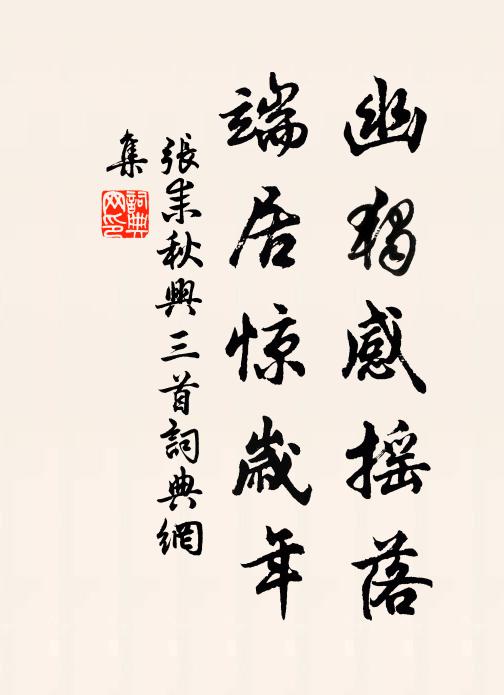 幽獨感摇落
端居惊歲年
張耒秋興三首詞典網
集
詞典
网印